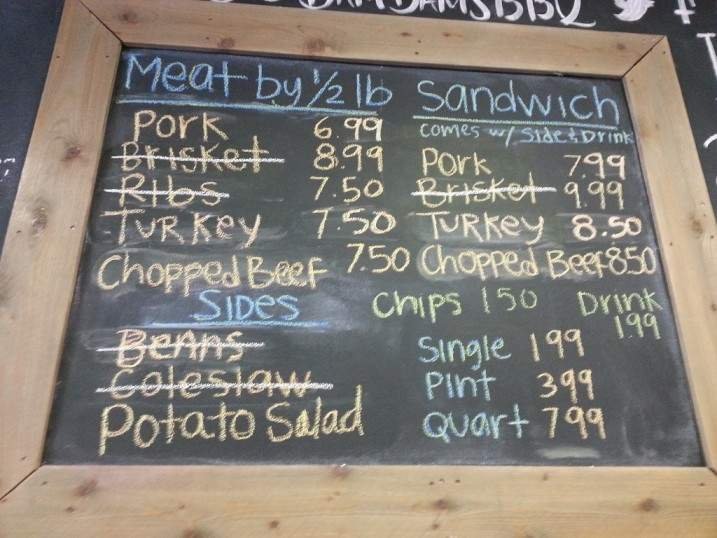 BAMBAMSBBQ
Meat by 1/2 lb
Pork 6.99
Brisket 8.99
Ribs 7.50
Turkey 7.50
Chopped Beef 7.50
Sides
Beans
Coleslaw
Potato Salad
Sandwich
comes w/ side & Drink
Pork 7.99
Brisket 9.99
Turkey 8.50
Chopped Beef 8.50
Chips 1 50 Drink
1.99
Single 1 99
Pint 3 99
Quart 7 99